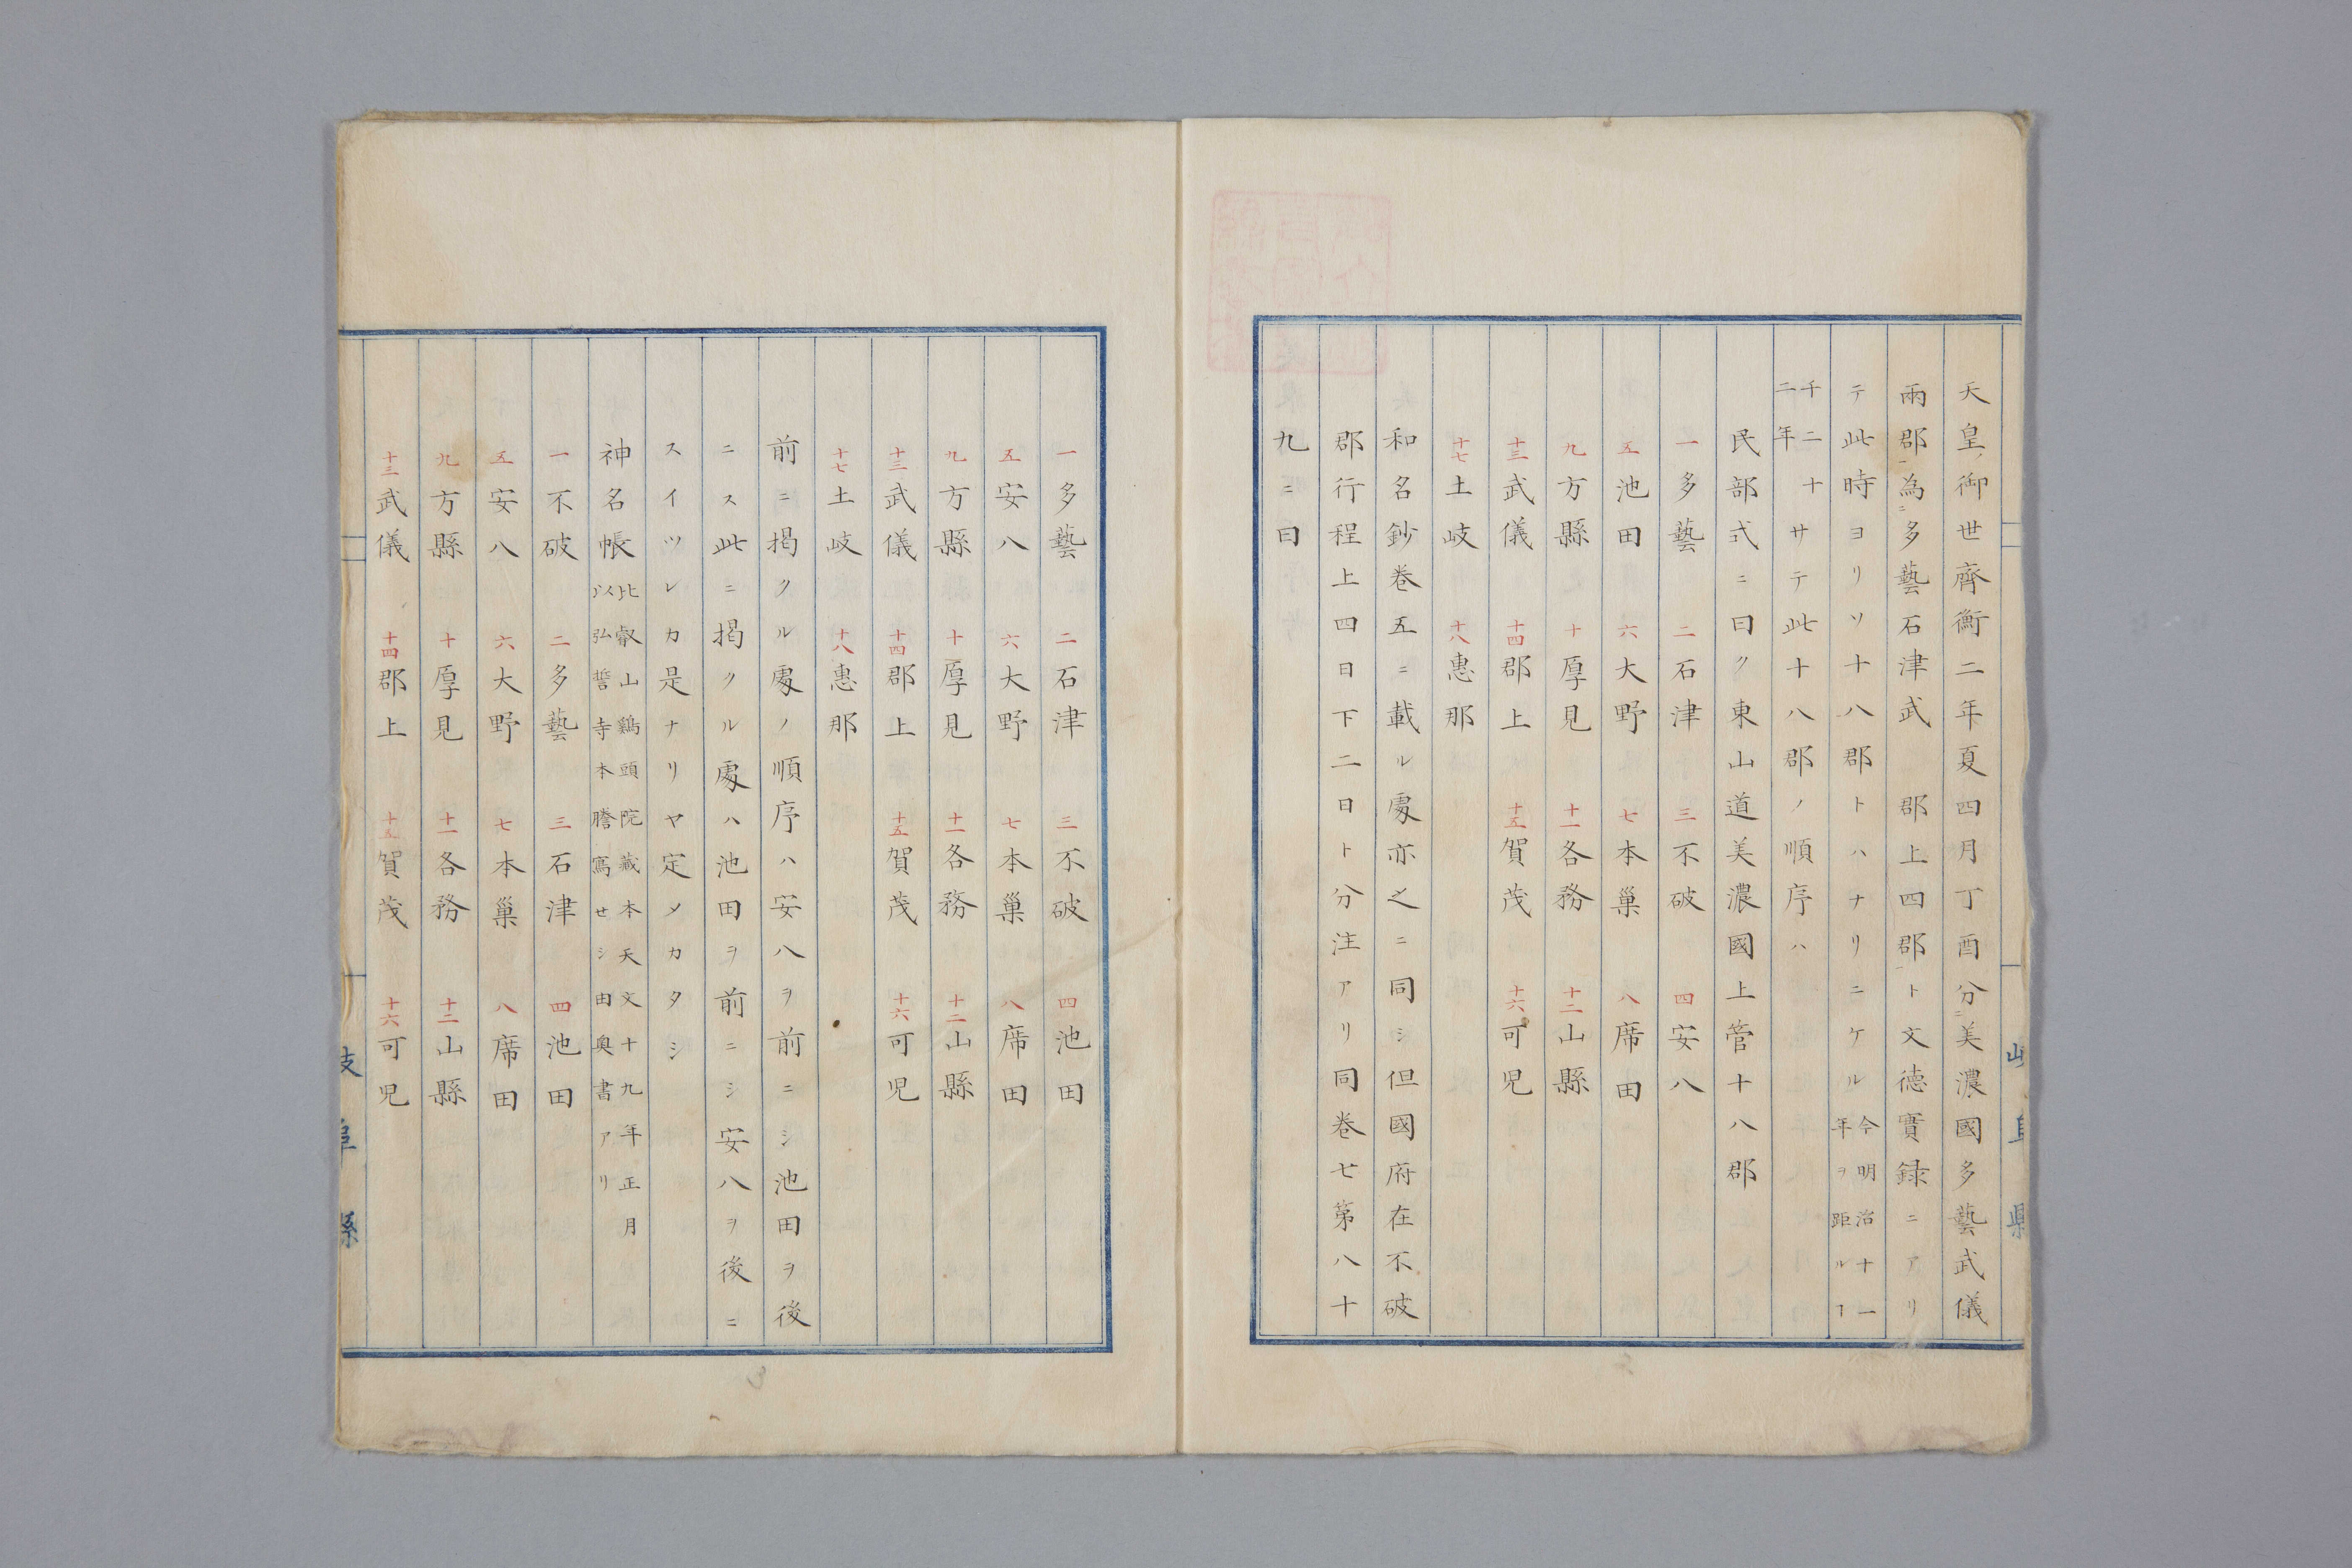 天皇ノ御世齊衡二年夏四月丁酉分ニ美濃國多藝武儀
兩郡一為ニ多藝石津武　郡上四郡一ト文德實録ニアリ
テ此時ヨリソ十八郡トハナリニケル今明治十一年ヲ距ルヿ
千二十二年サテ此十八郡ノ順序ハ
民部式ニ曰ク東山道美濃國上管十八郡
一多藝　二石津　三不破　四安八
五池田　六大野　七本巢　八席田
九方縣　十厚見　十一各務　十二山縣
十三武儀　十四郡上　十五賀茂　十六可児
十七土岐　十八惠那
和名鈔卷五ニ載ル處亦之ニ同シ但國府在不破
郡行程上四日下二日ト分注アリ同卷七第八十
九ニ曰
一多藝　二石津　三不破　四池田
五安八　六大野　七本巢　八席田
九方縣　十厚見　十一各務　十二山縣
十三武儀　十四郡上　十五賀茂　十六可児
十七土岐　十八惠那
前ニ掲クル處ノ順序ハ安八ヲ前ニシ池田ヲ後
ニス此ニ掲クル處ハ池田ヲ前ニシ安八ヲ後ニ
スイツレカ是ナリヤ定メカタシ
神名帳比叡山鷄頭院藏本天文十九年正月以弘誓寺本謄寫セシ由奥書アリ
一不破　二多藝　三石津　四池田
五安八　六大野　七本巢　八席田
九方縣　十厚見　十一各務　十二山縣
十三武儀　十四郡上　十五賀茂　十六可児
岐阜縣